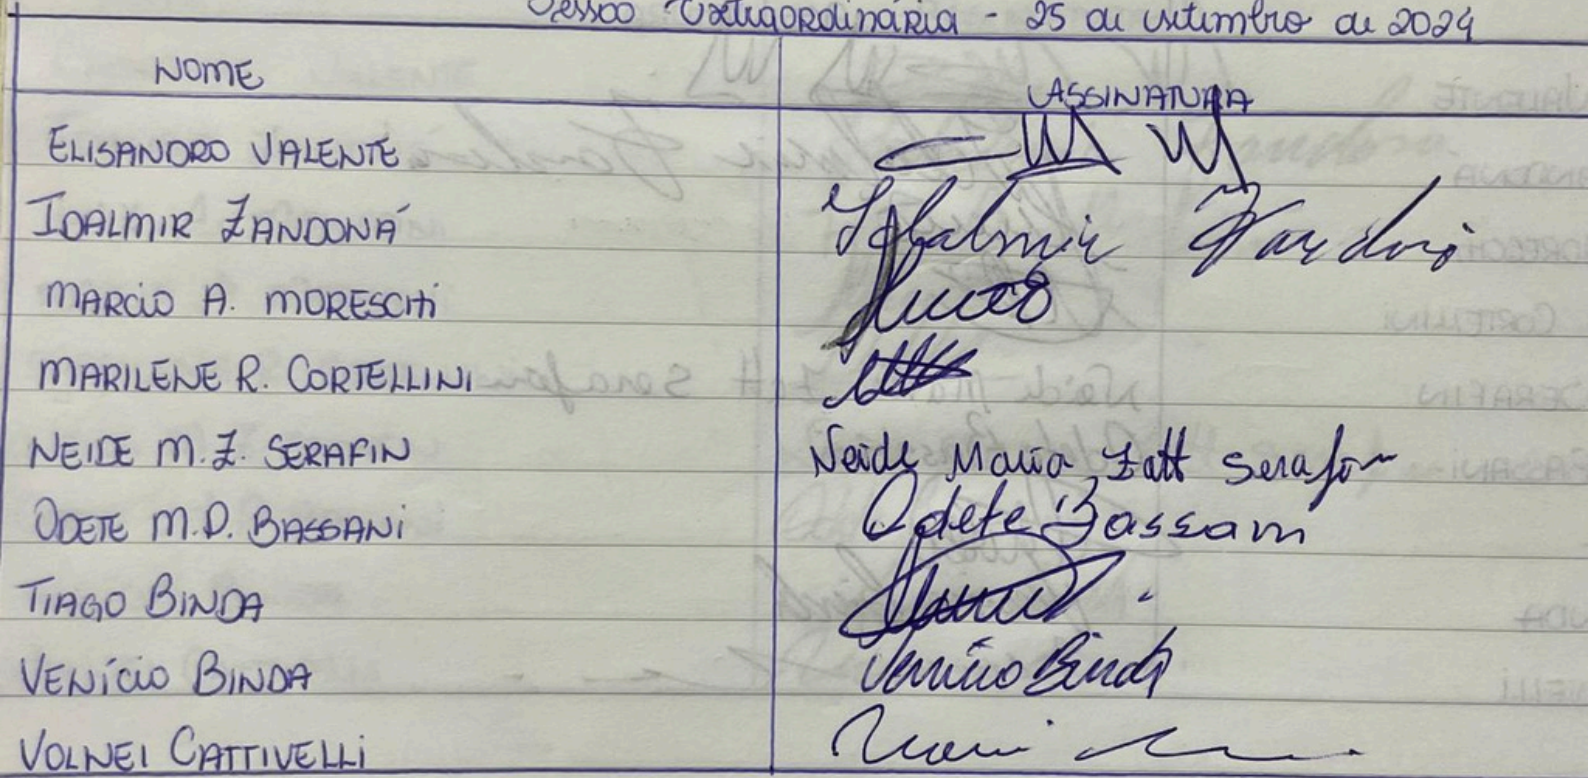 Sessão Extraordinária - 25 de setembro de 2024
NOME ASSINATURA
ELISANDRO VALENTE
IDALMIR ZANDONÁ Idalmir Zandoná
MARCIO A. MORESCHI
MARILENE R. CORTELLINI
NEIDE M.Z. SERAFIN Neide Maria Zatt Serafin
ODETE M.D. BASSANI Odete Bassani
TIAGO BINDA
VENÍCIO BINDA Venício Binda
VOLNEI CATTIVELLI